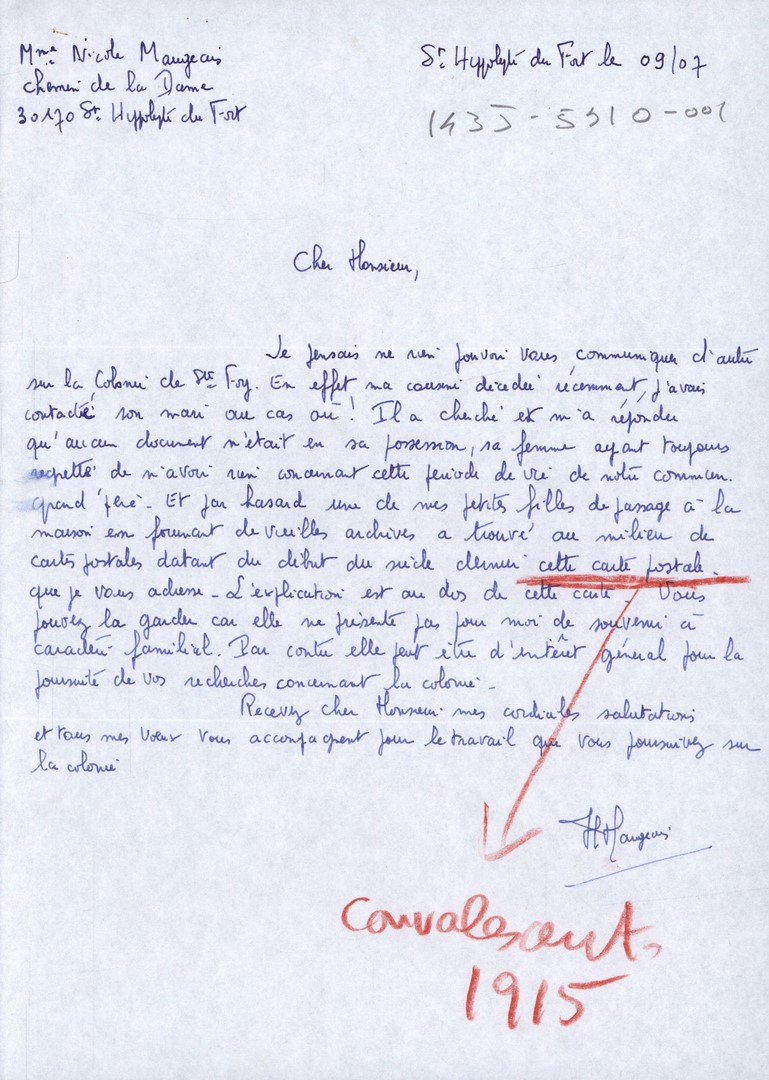 Mme Nicole Maugeais
chemin de la Dame
30170 St Hippolyte du Fort
St Hippolyte du Fort le 09/07
1435-5910-001
Cher Monsieur,
Je pensais ne rien pouvoir vous communiquer d'autre
sur la Colonie de Ste Foy. En effet ma cousine décédée récemment, j'avais
contacté son mari au cas où ! Il a cherché et m'a répondu
qu'aucun document n'était en sa possession, sa femme ayant toujours
regretté de n'avoir rien concernant cette période de vie de notre commun.
grand'père. Et par hasard une de mes petites filles de passage à la
maison en fouinant de vieilles archives a trouvé au milieu de
cartes postales datant du début du siècle dernier cette carte postale.
que je vous adresse. L'explication est au dos de cette carte. Vous
pouvez la garder car elle ne présente pas pour moi de souvenir à
caractère familial. Par contre elle peut être d'intérêt général pour la
poursuite de vos recherches concernant la colonie.
Recevez cher Monsieur mes cordiales salutations
et tous mes voeux vous accompagnent pour le travail que vous poursuivez sur
la colonie
Maugeais
Convalescents
1915